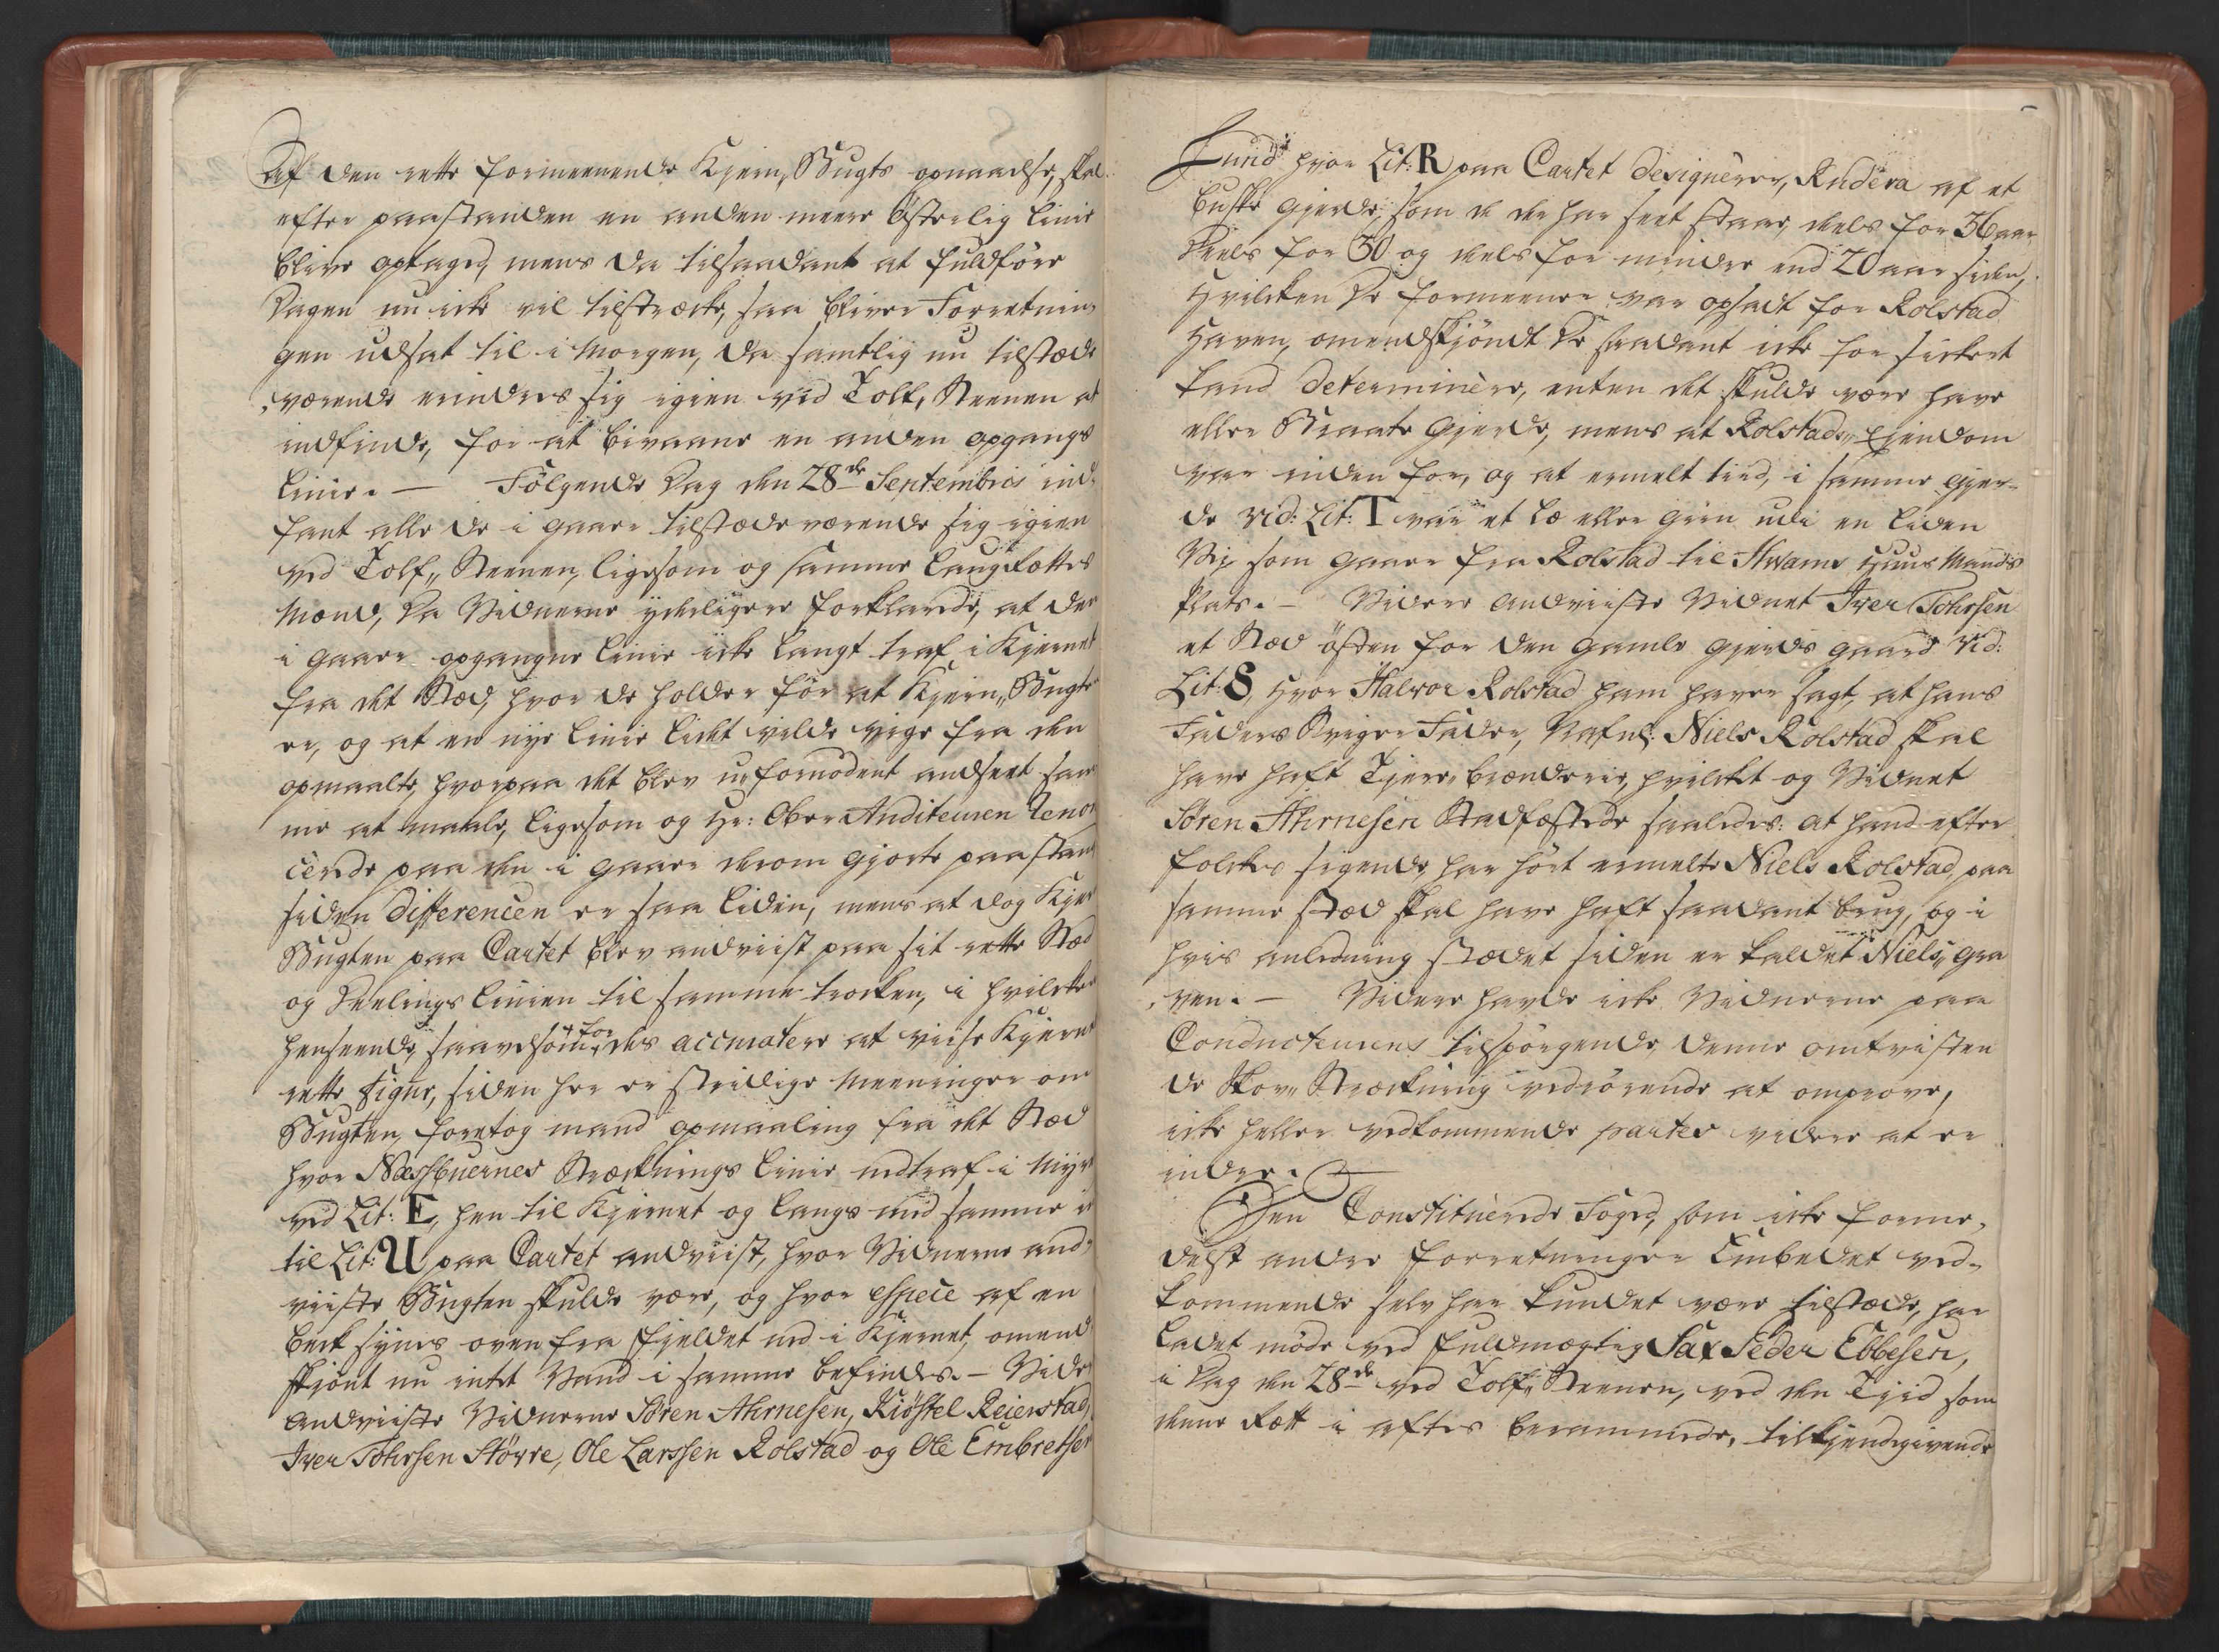 Af den rette formeenende Kjern„Bugts opnaaelse, skal
efter paastanden en anden meere Østerlig Linie
blive optaged, mens da tilsaadant at fuldføre
Dagen nu icke vil tilstrecke, saa bliver Forretnin„
gen udsat til i Morgen, da samtlig nu tilstæde
„værende erindres sig igien ved Tolf„ Steenen at
indfinde, for at bivaane en anden opgangs
Linie. — Følgende Dag den 28de Septembris ind„
fant alle de i Gaar tilstædeværende sig igien
ved Tolf„ Steenen, ligesom og samme Laugrættes
Mænd, da Vidnerne yderligere forklarede, at den
i Gaar opgangne Linie icke langt traf i Kjernet
fra det Stæd, hvor de holder for at Kjern„Bugten
er, og at en nye Linie lidet vilde vige fra den
opmaalte, hvorpaa det blev ufornødent andseet sam„
me at maale, ligesom og Hr: Ober Auditeuren Renon„
cerede paa den i Gaar derom gjorte paastand
siden Differencen er saa liden, mens at dog Kjern
Bugten paa Cartet blev andviist paa sit rette Stæd
og Deelings Linien til samme trocken, i hvilcken
henseende, saavelsom for des accuratere at viise Kjernets
rette Figur, siden her er stridige Meeninger om
Bugten, foretog mand opmaaling fra det Stæd
hvor Næssbuernes Strecknings Linie indtraf i Myren
ved Lit: E, hen til Kjernet og langs med samme
til Lit: U paa Cartet andviist, hvor Vidnerne and„
viiste Bugten skulde være, og hvor espece af en
beck synes oven fra Fjeldet ned i Kjernet, omend
skjønt nu intet Vand i samme befindes. — Videre
Andviiste Vidnerne Søren Ahrnesen, Kiøstel Reierstad,
Iver Tohrsen Større, Ole Larssen Rolstad og Ole Embretsen
Lund hvor Lit: R paa Cartet designerer, Rudera af et
buske Gjerde, som de der har seet staar, deels for 36 aar
deels for 30 og deels for minder end 20 aar siden,
hvilcken de formeener var opsadt for Rolstad
Haven, omendskjøndt de saadant icke for sickert
kand determinere, enten det skulde være have
eller Braate Gjerde, mens at Rolstads„ Ejendom
var inden for, og at ermelt tied, i samme Gjer„
de ved: Lit: T var et Lee eller Grin udi en liden
Vej som gaar fra Rolstad til Hvams Huus Mands
Plads. — Videre andviiste Vidnet Iver Tohrsen
et Stæd østen for den gamle Gjerdes gaard ved:
Lit: S, hvor Halvor Rolstad ham haver sagt, at hans
Faders Sviger Fader, Nafnl: Niels Rolstad skal
have haft Tjære„brænderie, hvilcket og Vidnet
Søren Ahrnesen Stadfæstede saaledes: at hand efter
folckes sigende, har hørt ermelte Niels Rolstad, paa
samme stæd skal have haft saadant brug, og i
hvis anledning stædet siden er kaldet Niels„ Gra
„ven. — Videre havde icke Vidnerne paa
Conducteurens tilspørgende denne omtvisten
de Skov„ Streckning vedrørende at omprove,
icke heller vedkommende parter videre at er
indre.
Den Constituerede Foged, som icke forme„
delst andre forretninger Embedet ved„
kommende selv har kundet være tilstæde, har
ladet møde ved fuldmægtig Sax Peder Ebbesen,
i Dag den 28de ved Tolf„ Steenen, ved den Tjid som
denne Rætt i aftes berammede, tilkjendegivende